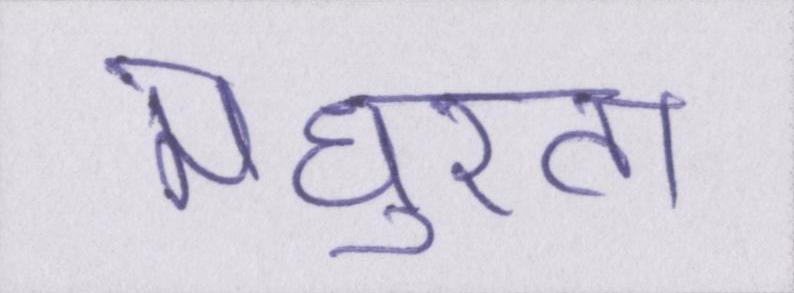 मधुरता